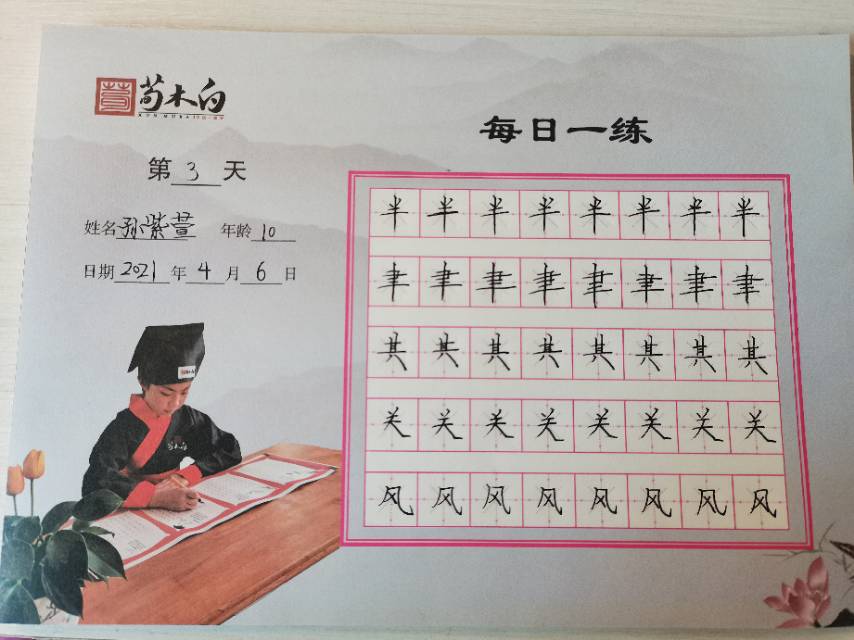 荀木白
每日一练
第 3 天
姓名 孙紫萱 年龄 10
日期 2021 年 4 月 6 日
半 半 半 半 半 半 半 半
聿 聿 聿 聿 聿 聿 聿 聿
其 其 其 其 其 其 其 其
关 关 关 关 关 关 关 关
风 风 风 风 风 风 风 风